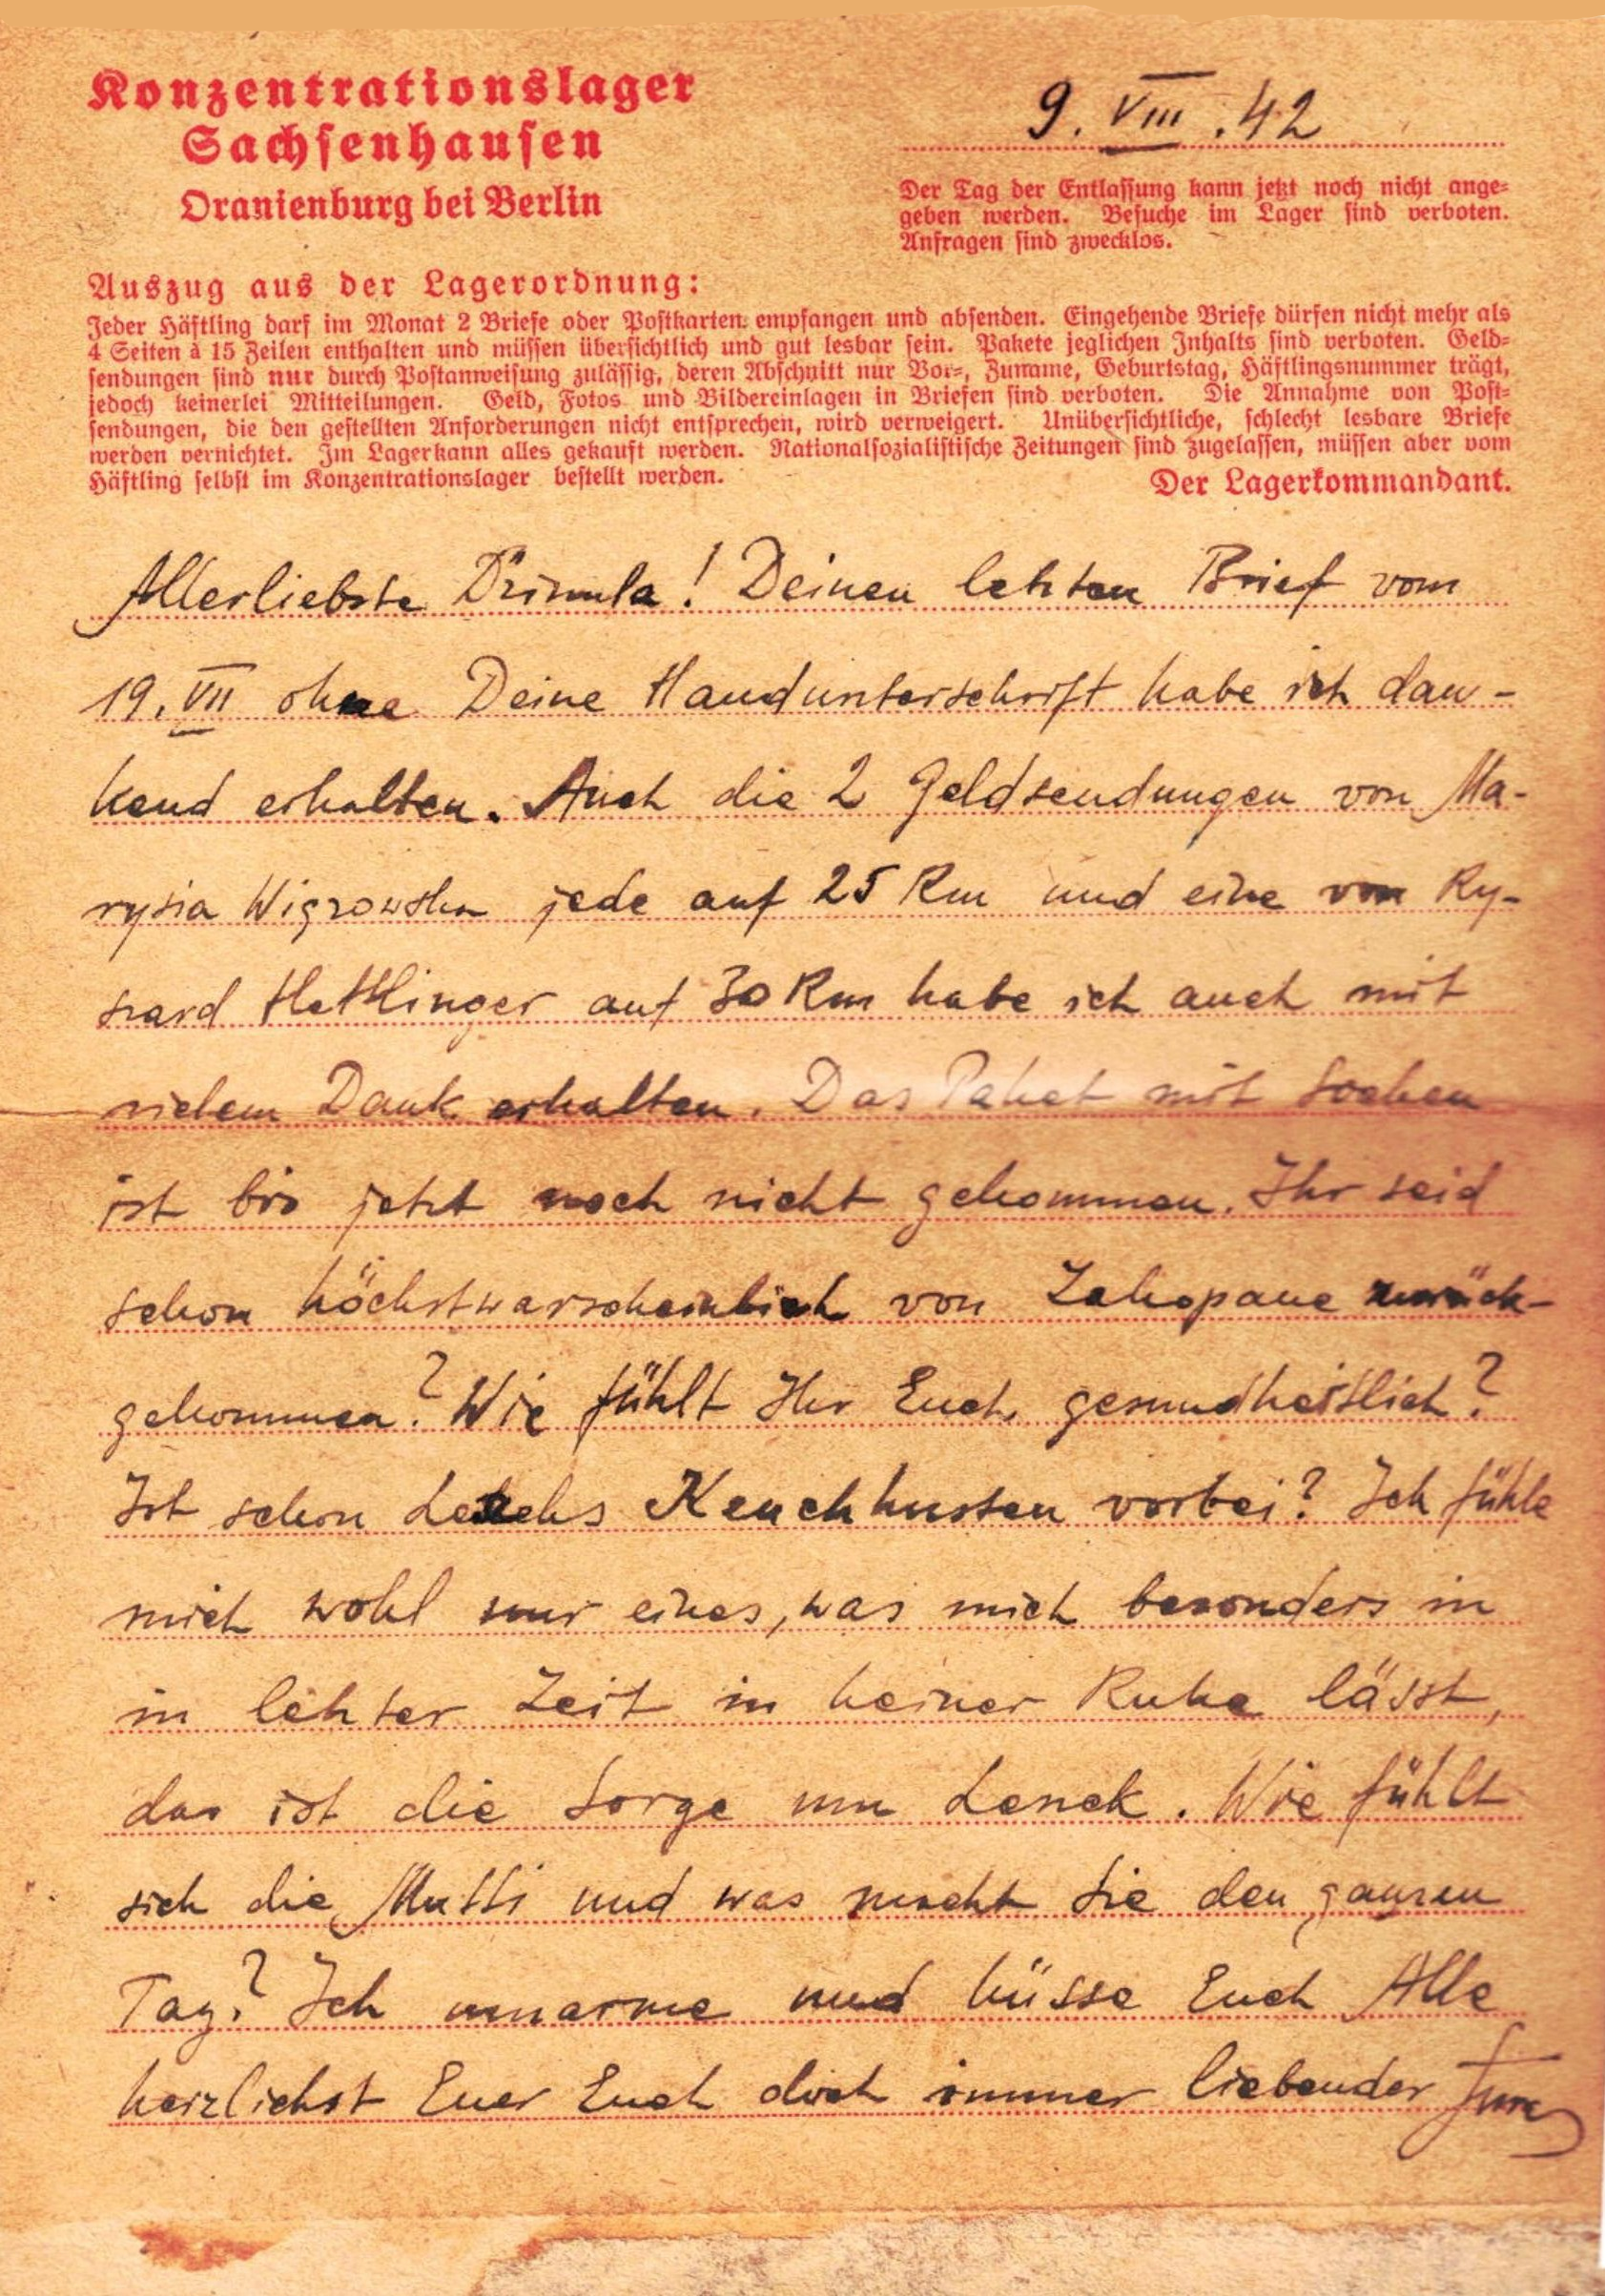 Konzentrationslager
Sachsenhausen
Oranienburg bei Berlin
9. VIII. 42
Der Tag der Entlassung kann jetzt noch nicht ange-
geben werden. Besuche im Lager sind verboten.
Anfragen sind zwecklos.
Auszug aus der Lagerordnung:
Jeder Häftling darf im Monat 2 Briefe oder Postkarten empfangen und absenden. Eingehende Briefe dürfen nicht mehr als
4 Seiten à 15 Zeilen enthalten und müssen übersichtlich und gut lesbar sein. Pakete jeglichen Inhalts sind verboten. Geld-
sendungen sind nur durch Postanweisung zulässig, deren Abschnitt nur Vor-, Zuname, Geburtstag, Häftlingsnummer trägt,
jedoch keinerlei Mitteilungen. Geld, Fotos und Bildereinlagen in Briefen sind verboten. Die Annahme von Post-
sendungen, die den gestellten Anforderungen nicht entsprechen, wird verweigert. Unübersichtliche, schlecht lesbare Briefe
werden vernichtet. Im Lager kann alles gekauft werden. Nationalsozialistische Zeitungen sind zugelassen, müssen aber vom
Häftling selbst im Konzentrationslager bestellt werden.
Der Lagerkommandant.
Allerliebste ! Deinen letzten Brief vom
19. VII ohne Deine Handunterschrift habe ich dan-
kend erhalten. Auch die 2 Geldsendungen von Ma-
rysia jede auf 25 Rm und eine von Ry-
szard Hettlinger auf 30 Rm habe ich auch mit
vielem Dank erhalten. Das Paket mit Socken
ist bis jetzt noch nicht gekommen. Ihr seid
schon höchstwarscheinlich von Zakopane zurück-
gekommen? Wie fühlt Ihr Euch gesundheitlich?
Ist schon Keuchhusten vorbei? Ich fühle
mich wohl nur eines, was mich besonders in
in letzter Zeit in keiner Ruhe lässt,
das ist die Sorge um Lenek. Wie fühlt
sich die Mutti und was macht Sie den ganzen
Tag? Ich umarme und küsse Euch Alle
herzlichst Euer Euch doch immer liebender